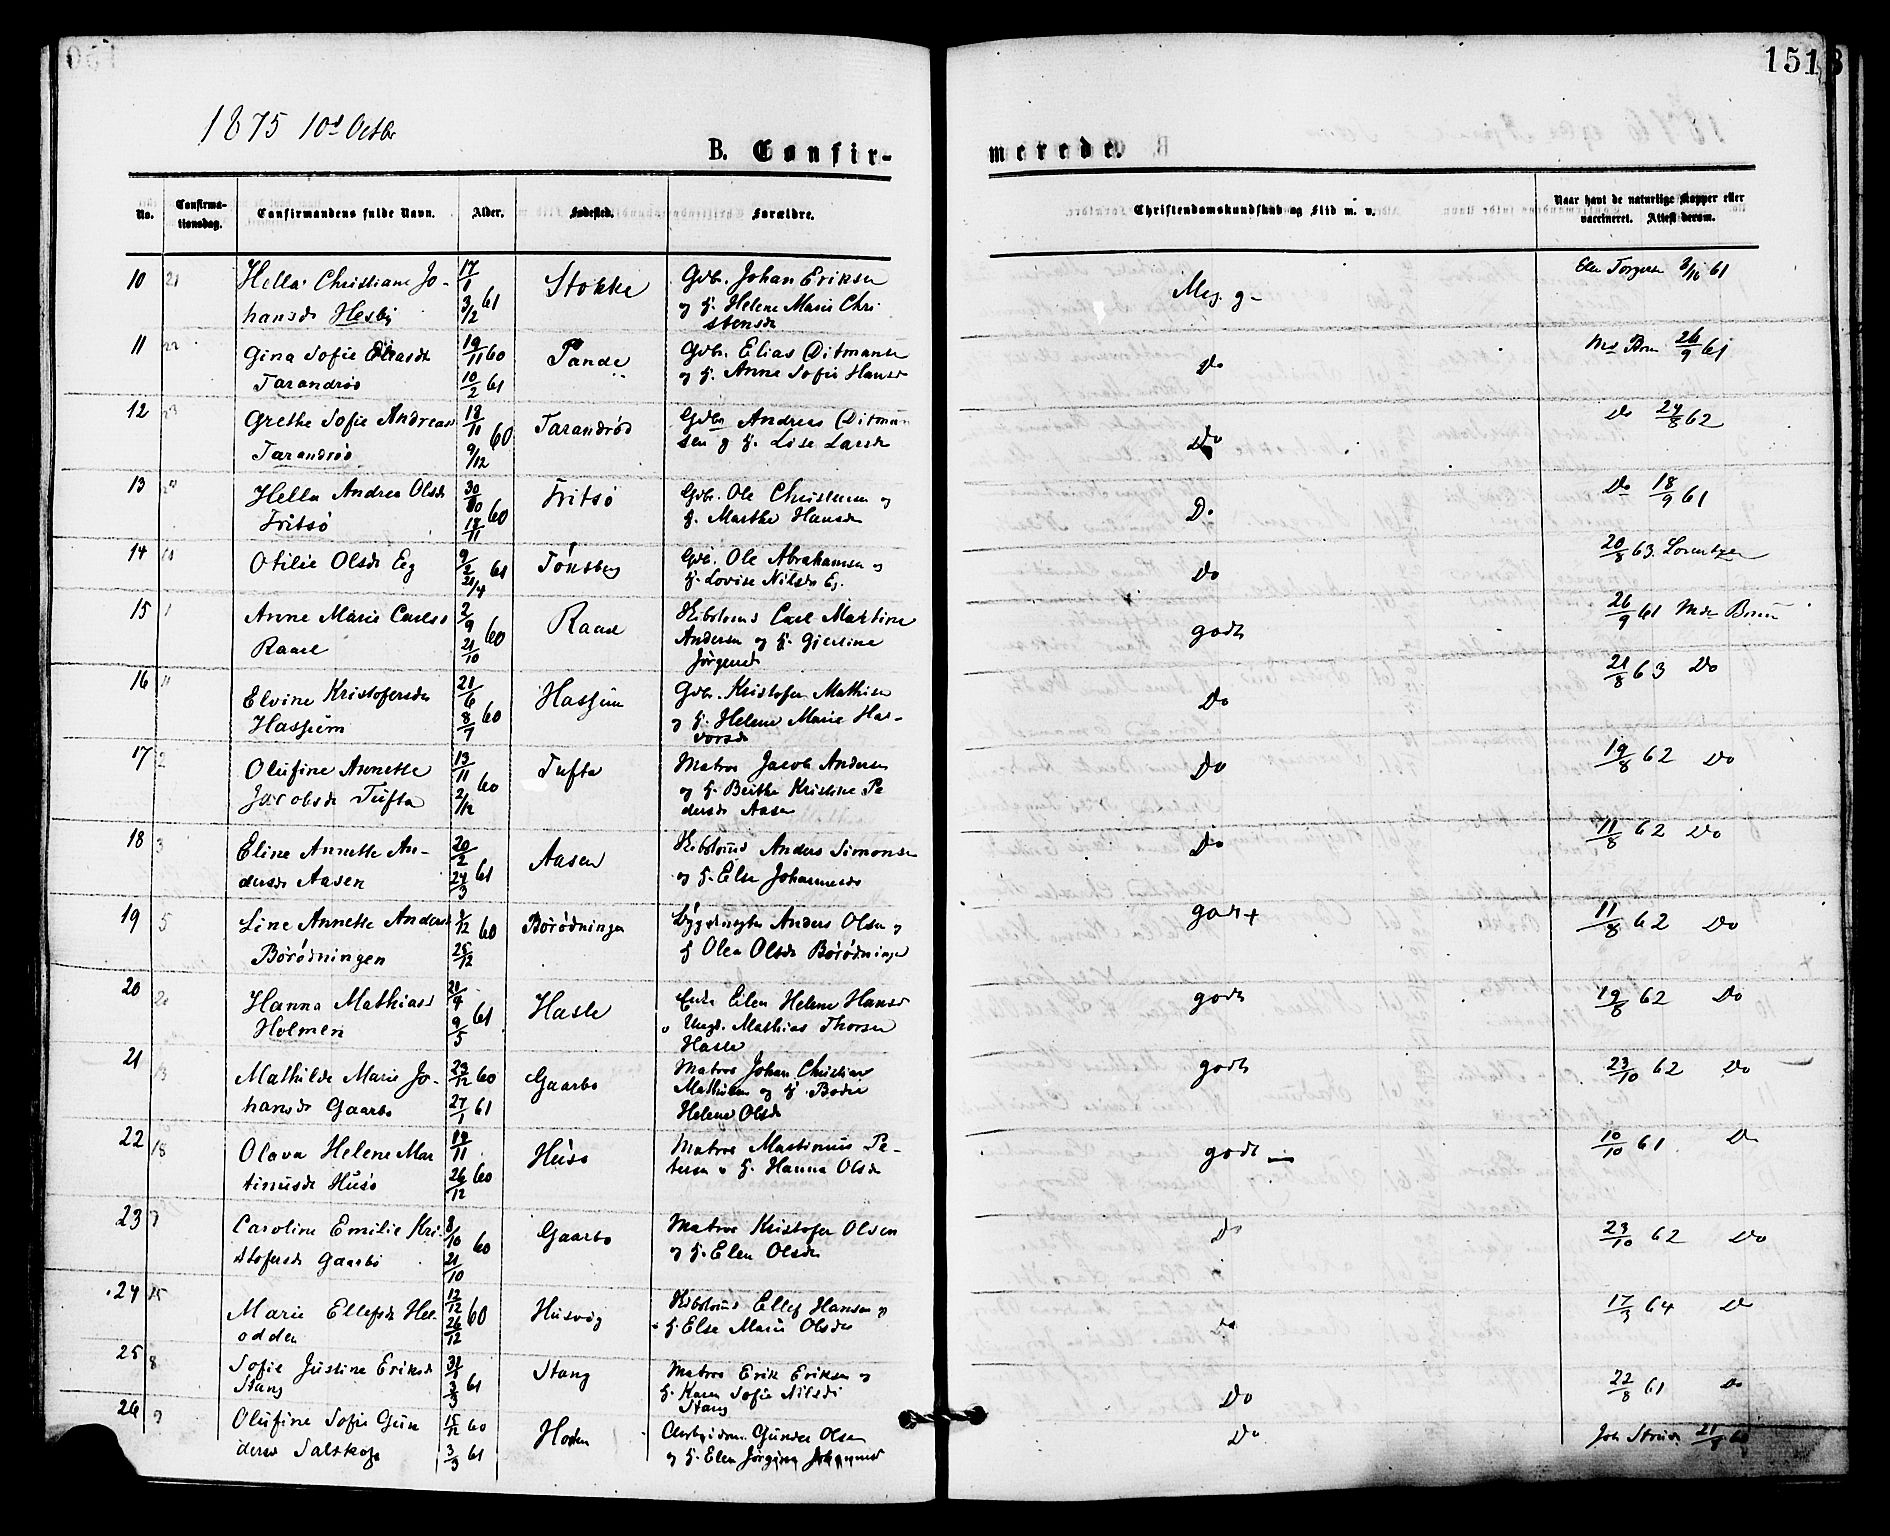 151
1875 10d Octbr
B. Confir-
merede.
No.
Confirma-
tionsdag.
Confirmandens fulde Navn.
Alder.
Fødested.
Forældre.
Christendomskundskab og Flid m. v.
Naar havt de naturlige Kopper eller
vaccineret. Attest derom.
10 21 Hella Christiane Jo- 17/1 Stokke Gdbr. Johan Eriksen Meg. g- Elen Torgersen 3/10 61
hansdr Hesby 3/2 61 og H. Helene Marie Chri
stensdr
11 22 Gina Sofie Eliasdr 19/11 60 Tande Gdbr. Elias Ditmansen Do 26/9 61
Tarandrød 10/2 61 og H. Anne Sofie Hansd
12 23 Grethe Sofie Andreasd 18/11 60 Tarandrød Gdbr Andreas Ditman Do Do 24/8 62
Tarandrød 9/12 sen og H. Lise Larsdr
13 24 Hella Andrea Olsdr 30/10 60 Fritsø Gdbr. Ole Christensen og Do Do 18/9 61
Fritsø 18/11 H. Marthe Hansdr
14 10 Otilie Olsdr Eeg 9/2 61 Tönsberg Gdb. Ole Abrahamsen og Do 20/8 63. Lorentzen
21/4 H. Lovise Nilsdr Eg.
15 1 Anne Marie Carlsd 2/9 60 Raael Carl Martin godt 26/9 61 Mdm Bruun
Raael 21/10 Andersen og H. Gjertine
Jørgensd
16 11 Elvine Kristofersdr 21/6 60 Hassum Gdbr. Kristofer Mathisen Do 21/8 63 Do
Hassum 8/7 og H. Helene Marie Hal-
vorsdr
17 2 Olufine Annette 13/11 60 Tufte Matros Jacob Andersen Do 19/8 62 Do
Jacobsdr Tufte 2/12 og H. Berthe Kristine Pe
dersdr Aasen
18 3 Eline Annette An- 20/2 61 Aasen Anders Simonsen Do 11/8 62 Do
dersdr Aasen 24/3 og H. Else Johannesdr
19 5 Line Annette Andersd 1/12 60 Börödningen Anders Olsen og godt+ 11/8 62 Do
Börödningen 25/12 H Olea Olsdr Börödningen
20 20 Hanna Mathiasd 20/4 61 Hasle Enke Elen Helene Hansd godt 19/8 62 Do
Holmen 9/5 o Ungk. Mathias Thorsen
Hasle
21 13 Mathilde Marie Jo- 29/12 60 Gaarbo Matros Johan Christian godt 23/10 62 Do
hansdr Gaarbo 27/1 61 Mathisen og H. Bodil
Helene Olsdr
22 18 Olava Helene Mar 19/11 60 Husö Matros Martinius Pe- godt 10/10 61 Do
tinusdr Husö 26/12 tersen o H. Hanna Olsdr
23 7 Caroline Emilie Kri 8/10 60 Gaarbo Matros Kristofer Olsen Do 23/10 62 Do
stofersdr Gaarbo 21/10 og H. Elen Olsdr
24 15 Marie Ellefsdr Hel 12/12 60 Husvig Ellef Hansen og Do 17/3 64 Do
odden 26/12 H Else Marie Olsdr
25 8 Sofie Justine Eriksdr 31/1 61 Stang Matros Erik Eriksen og Do 22/8 61 Do
Stang 3/3 H. Karen Sofie Nilsdr
Stang
26 9 Olufine Sofie Gun 15/12 60 Arbeidsm. Gunder Olsen Do
dersd Saltkop 3/3 61 og H. Elen Jørgine Johannesd